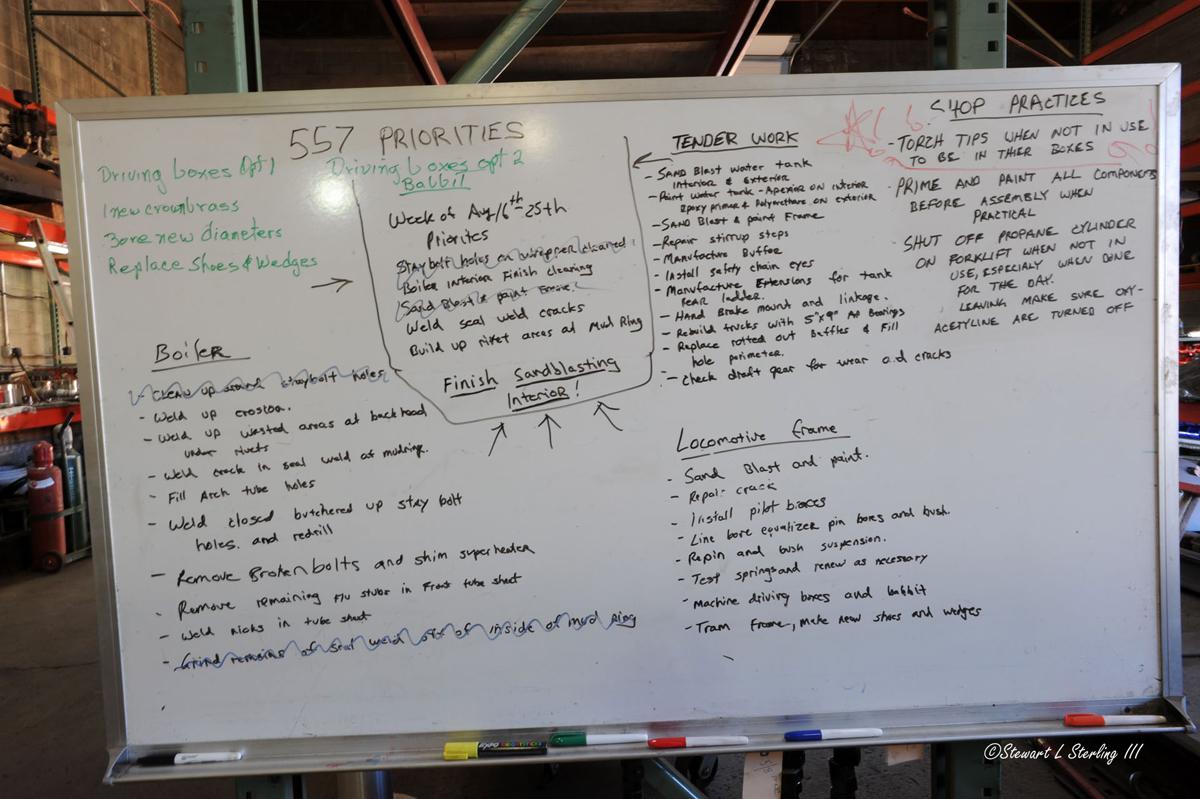 557 PRIORITIES
Driving boxes opt 1
1 new crownbrass
Bore new diameters
Replace Shoes & Wedges
Driving boxes opt 2
Babbit
Week of Aug 16th 25th
Priorites
Staybolt holes on wrapper cleaned.
Boiler interior Finish cleaning
Sand Blast & paint
Weld seal weld cracks
Build up rivet areas at Mud Ring
Finish Sandblasting
Interior!
Boiler
- Clean up around staybolt holes
- Weld up erosion.
- Weld up wasted areas at backhead
under rivets
- Weld crack in seal weld at mudring.
- Fill Arch tube holes
- Weld closed butchered up stay bolt
holes. and redrill
- Remove Broken bolts and shim superheater
- Remove remaining Flu stubs in Front tube sheet
- Weld nicks in tube sheet
- Grind remains of seal weld off of inside of mud Ring
TENDER WORK
- SAND Blast water tank
interior & exterior
- Paint water tank - Apexior on interior
Epoxy primer & Polyurethane on exterior
- Sand Blast & paint Frame
- Repair stirrup steps
- Manufacture Buffer
- Install safety chain eyes
- Manufacture Extensions for tank
rear ladder.
- Hand Brake mount and linkage.
- Rebuild trucks with 5"x9" AP Bearings
- Replace rotted out Baffles & Fill
hole perimeter.
- Check draft gear for wear and cracks
Locomotive frame
- Sand Blast and paint.
- Repair crack
- Install pilot braces
- Line bore equalizer pin bores and bush.
- Repin and bush suspension.
- Test springs and renew as necessary
- Machine driving boxes and babbit
- Tram Frame, make new shoes and wedges
SHOP PRACTICES
- TORCH TIPS WHEN NOT IN USE
TO BE IN THIER BOXES
- PRIME AND PAINT ALL COMPONENTS
BEFORE ASSEMBLY WHEN
PRACTICAL
SHUT OFF PROPANE CYLINDER
ON FORKLIFT WHEN NOT IN
USE, ESPECIALY WHEN DONE
FOR THE DAY.
LEAVING MAKE SURE OXY-
ACETYLINE ARE TURNED OFF
EXPO
©Stewart L Sterling III